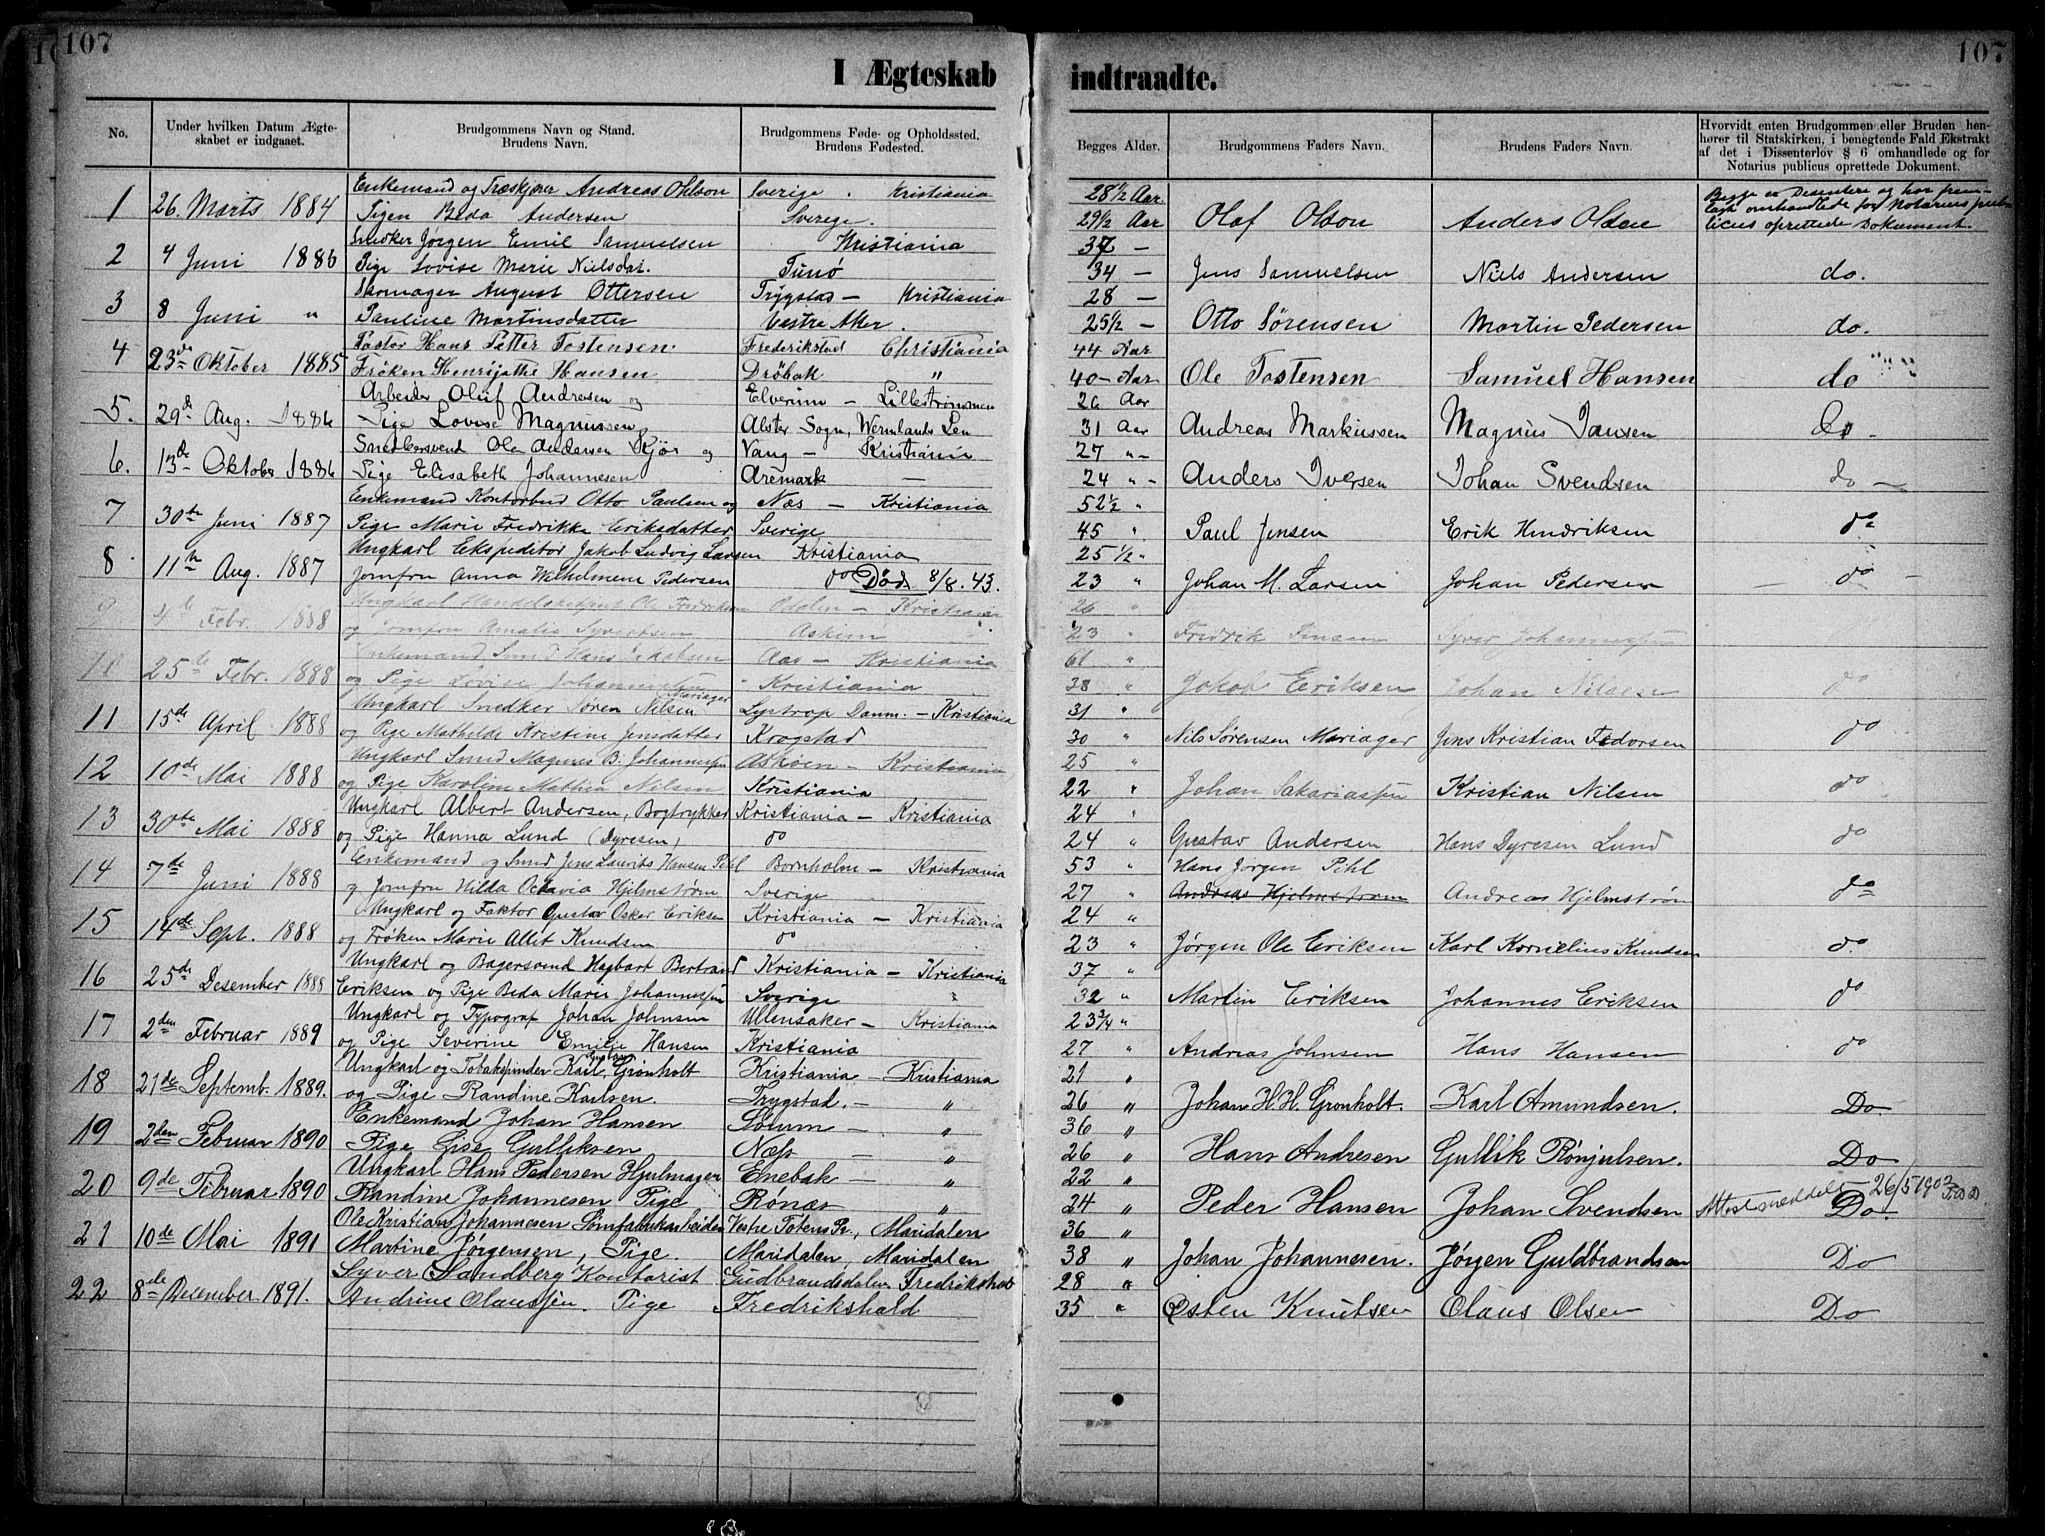 107
107
I Ægteskab indtraadte.
No.
Under hvilken Datum Ægte-
skabet er indgaaet.
Brudgommens Navn og Stand.
Brudens Navn.
Brudgommens Føde- og Opholdssted.
Brudens Fødested.
Begges Alder.
Brudgommens Faders Navn.
Brudens Faders Navn.
Hvorvidt enten Brudgommen eller Bruden hen-
hører til Statskirken, i benegtende Fald Ekstrakt
af det i Dissenterlov § 6 omhandlede og for
Notarius publicus oprettede Dokument.
Enkemand og Træskjærer Andreas Ohlson Sverige . Kristiania 28 1/2 Aar Begge er Desentere og har frem-
1 26. Marts 1884 Pigen Beda Andersen Sverege. 29 1/2 Aar Olof Olson Anders Olsen lagt omhandlede for Notarius pub-
licus oprettede Dokument.
Snedker Jørgen Emil Samuelsen Kristiania 37 —
2 4 Juni 1886 Pige Lovise Marie Nielsdat. Tunø 34 — Jens Samuelsen Niels Andersen do.
August Ottersen Trygstad — Kristiania 28 —
3 8 Juni " Pauline Martinsdatter Vestre Aker. 25 1/2 — Otto Sörensen Martin Pedersen do.
Pastor Hans Petter Tostensen. Frederikstad Christiania 44 Aar
4 23de Oktober 1885 Frøken Henrijette Hansen Drøbak " 40 — Aar Ole Tostensen Samuel Hansen do
Arbeider Oluf Andresen og Elverum — Lillestrømmen 26 Aar
5. 29de Aug. 1886 Pige Lovise Magnussen Alster Sogn, Wermlands Len 31 Aar Andreas Markussen Magnus Jansen do —
Snedkersvend Ole Andersen Kjör og Vang — Kristiania 27 " —
6. 13de Oktober 1886 Pige Elisabeth Johannesen Aremark — 24 " — Anders Iversen Johan Svendsen do —
Enkemand Kontorbud Otto Paulsen og Næs — Kristiania 52 1/2 "
7 30te Juni 1887 Pige Marie Fredrikke Eriksdatter Sverige 45 " Paul Jensen Erik Hendriksen do
Ungkarl Ekspeditør Jakob Ludvig Larsen Kristiania 25 1/2 "
8 11te Aug. 1887 Jomfru Anna Wilhelmene Pedersen do Död 8/8. 43. 23 " Johan M. Larsen Johan Pedersen do —
Ungkarl Ole Fredriksen Odalen — Kristiania 26 "
9 4de Febr. 1888 og Jomfru Amalie Syvertsen Askim 23 " Fredrik
Enkemand Smed Hans Jakobsen Aas — Kristiania 61 "
10 25de Febr. 1888 og Pige Lovise Kristiania 38 " Jakob Eriksen Johan Nilsen do
Ungkarl Snedker Sören Nilsen Mariager Lystrop Danm. — Kristiania 31 "
11 15de April 1888 og Pige Mathilde Kristine Jensdatter Krogstad 30 " Nils Sørensen Mariager Jens Kristian Fedorsen do
Ungkarl Smed Magnus B. Johannessen Askøen — Kristiania 25 "
12 10de Mai 1888 og Pige Karoline Mathia Nilsen Kristiania 22 " Johan Sakariassen Kristian Nilsen do
Ungkarl Albert Andersen, Bogtrykker Kristiania — Kristiania 24 "
13 30te Mai 1888 og Pige Hanna Lund (Dyresen) do 24 " Gustav Andersen Hans Dyresen Lund do
Enkemand og Smed Jens Laurits Hansen Pihl Bornholm — Kristiania 53 " Hans Jörgen Pihl
14 7de Juni 1888 og Jomfru Hilda Octavia Hjelmstrøm Sverige 27 " Andreas Hjelmstrøm Andreas Hjelmstrøm do
Ungkarl og Faktor Gustav Osker Eriksen Kristiania — Kristiania 24 "
15 14de Sept. 1888 og Frøken Marie Allet Knudsen do 23 " Jørgen Ole Eriksen Karl Kornelius Knudsen do
Ungkarl og Bagersvend Hagbart Bertrand Kristiania — Kristiania 37 "
16 25de Desember 1888 Eriksen og Pige Beda Marie Johannessen Sverige " 32 " Martin Eriksen Johannes Eriksen do
Ungkarl og Typograf Johan Johnsen Ullensaker — Kristiania 23 3/4 "
17 2den Februar 1889 og Pige Severine Emilie Hansen Kristiania 27 " Andreas Johnsen Hans Hansen do
Ungkarl og Tobakspinder Karl Gustav Gronholt Kristiania — Kristiania 21 "
18 21de Septemb. 1889. og Pige Randine Karlsen. Trygstad. — " 26 " Johan H. H. Gronholt. Karl Amundsen. Do
Enkemand Johan Hansen Sørum — " 36 "
19 2den Februar 1890 Pige Lise Gulliksen Næs — " 26 " Hans Andresen Gullik Rönjulsen. Do
Ungkarl Hans Pedersen Hjulmager Enebak — " 22 "
20 9de Februar 1890 Randine Johannesen Pige Rönæs " 24 " Peder Hansen Johan Svendsen Attest meddelt 26/5 1902 Do.
Ole Kristian Johannesen Sömfabrikarbeider Vestre Totens Pr., Maridalen 36 "
21 10de Mai 1891 Martine Jörgensen, Pige. Maridalen, Maridalen 38 " Johan Johannesen. Jörgen Guldbrandsen Do
Syver Sandberg Kontorist Gudbrandsdalen Fredrikshald 28 "
22 8de December 1891. Andrine Olaussen. Pige Fredrikshald 35 " Østen Knutsen Olaus Olsen Do